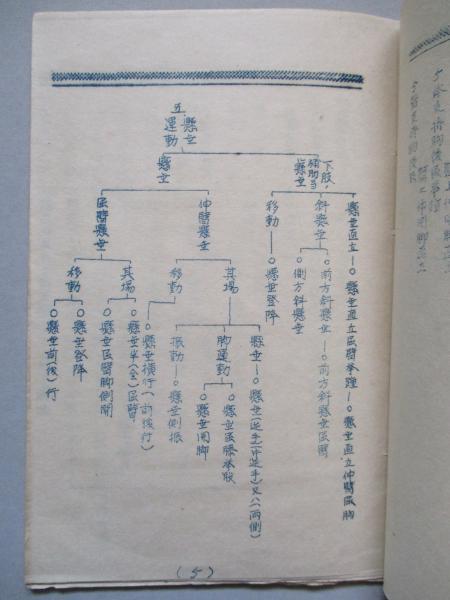 五、懸垂運動
下肢ノ補助アル懸垂
懸垂直立─○懸垂直立屈臂挙踵─○懸垂直立伸臂屈胸
斜懸垂
○前方斜懸垂─○前方斜懸垂屈臂
○側方斜懸垂
移動─○懸垂登降
懸垂
伸臂懸垂
其場
懸垂─○懸垂(逆手)(片逆手)又ハ(両側)
脚運動
○懸垂屈膝挙股
○懸垂開脚
振動─○懸垂側振
移動
○懸垂横行(前後行)
屈臂懸垂
其場
○懸垂半(全)屈臂
○懸垂屈臂脚側開
移動
○懸垂登降
○懸垂前(後)行
(5)